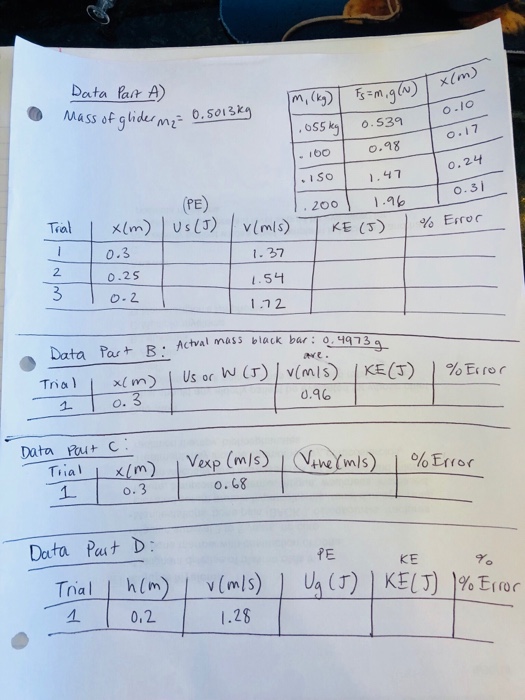 Data Part A)
Mass of glider m₂= 0.5013kg
m, (kg) Fs=m,g(N) x(m)
.055kg 0.539 0.10
.100 0.98 0.17
.150 1.47 0.24
.200 1.96 0.31
(PE)
Trial x(m) Us(J) v(m/s) KE (J) % Error
1 0.3 1.37
2 0.25 1.54
3 0.2 1.72
Data Part B: Actual mass black bar: 0.4973g
ave.
Trial x(m) Us or W (J) v(m/s) KE(J) % Error
1 0.3 0.96
Data Part C:
Trial x(m) Vexp (m/s) Vthe (m/s) % Error
1 0.3 0.68
Data Part D:
PE KE %
Trial h(m) v(m/s) Ug (J) KE(J) % Error
1 0.2 1.28